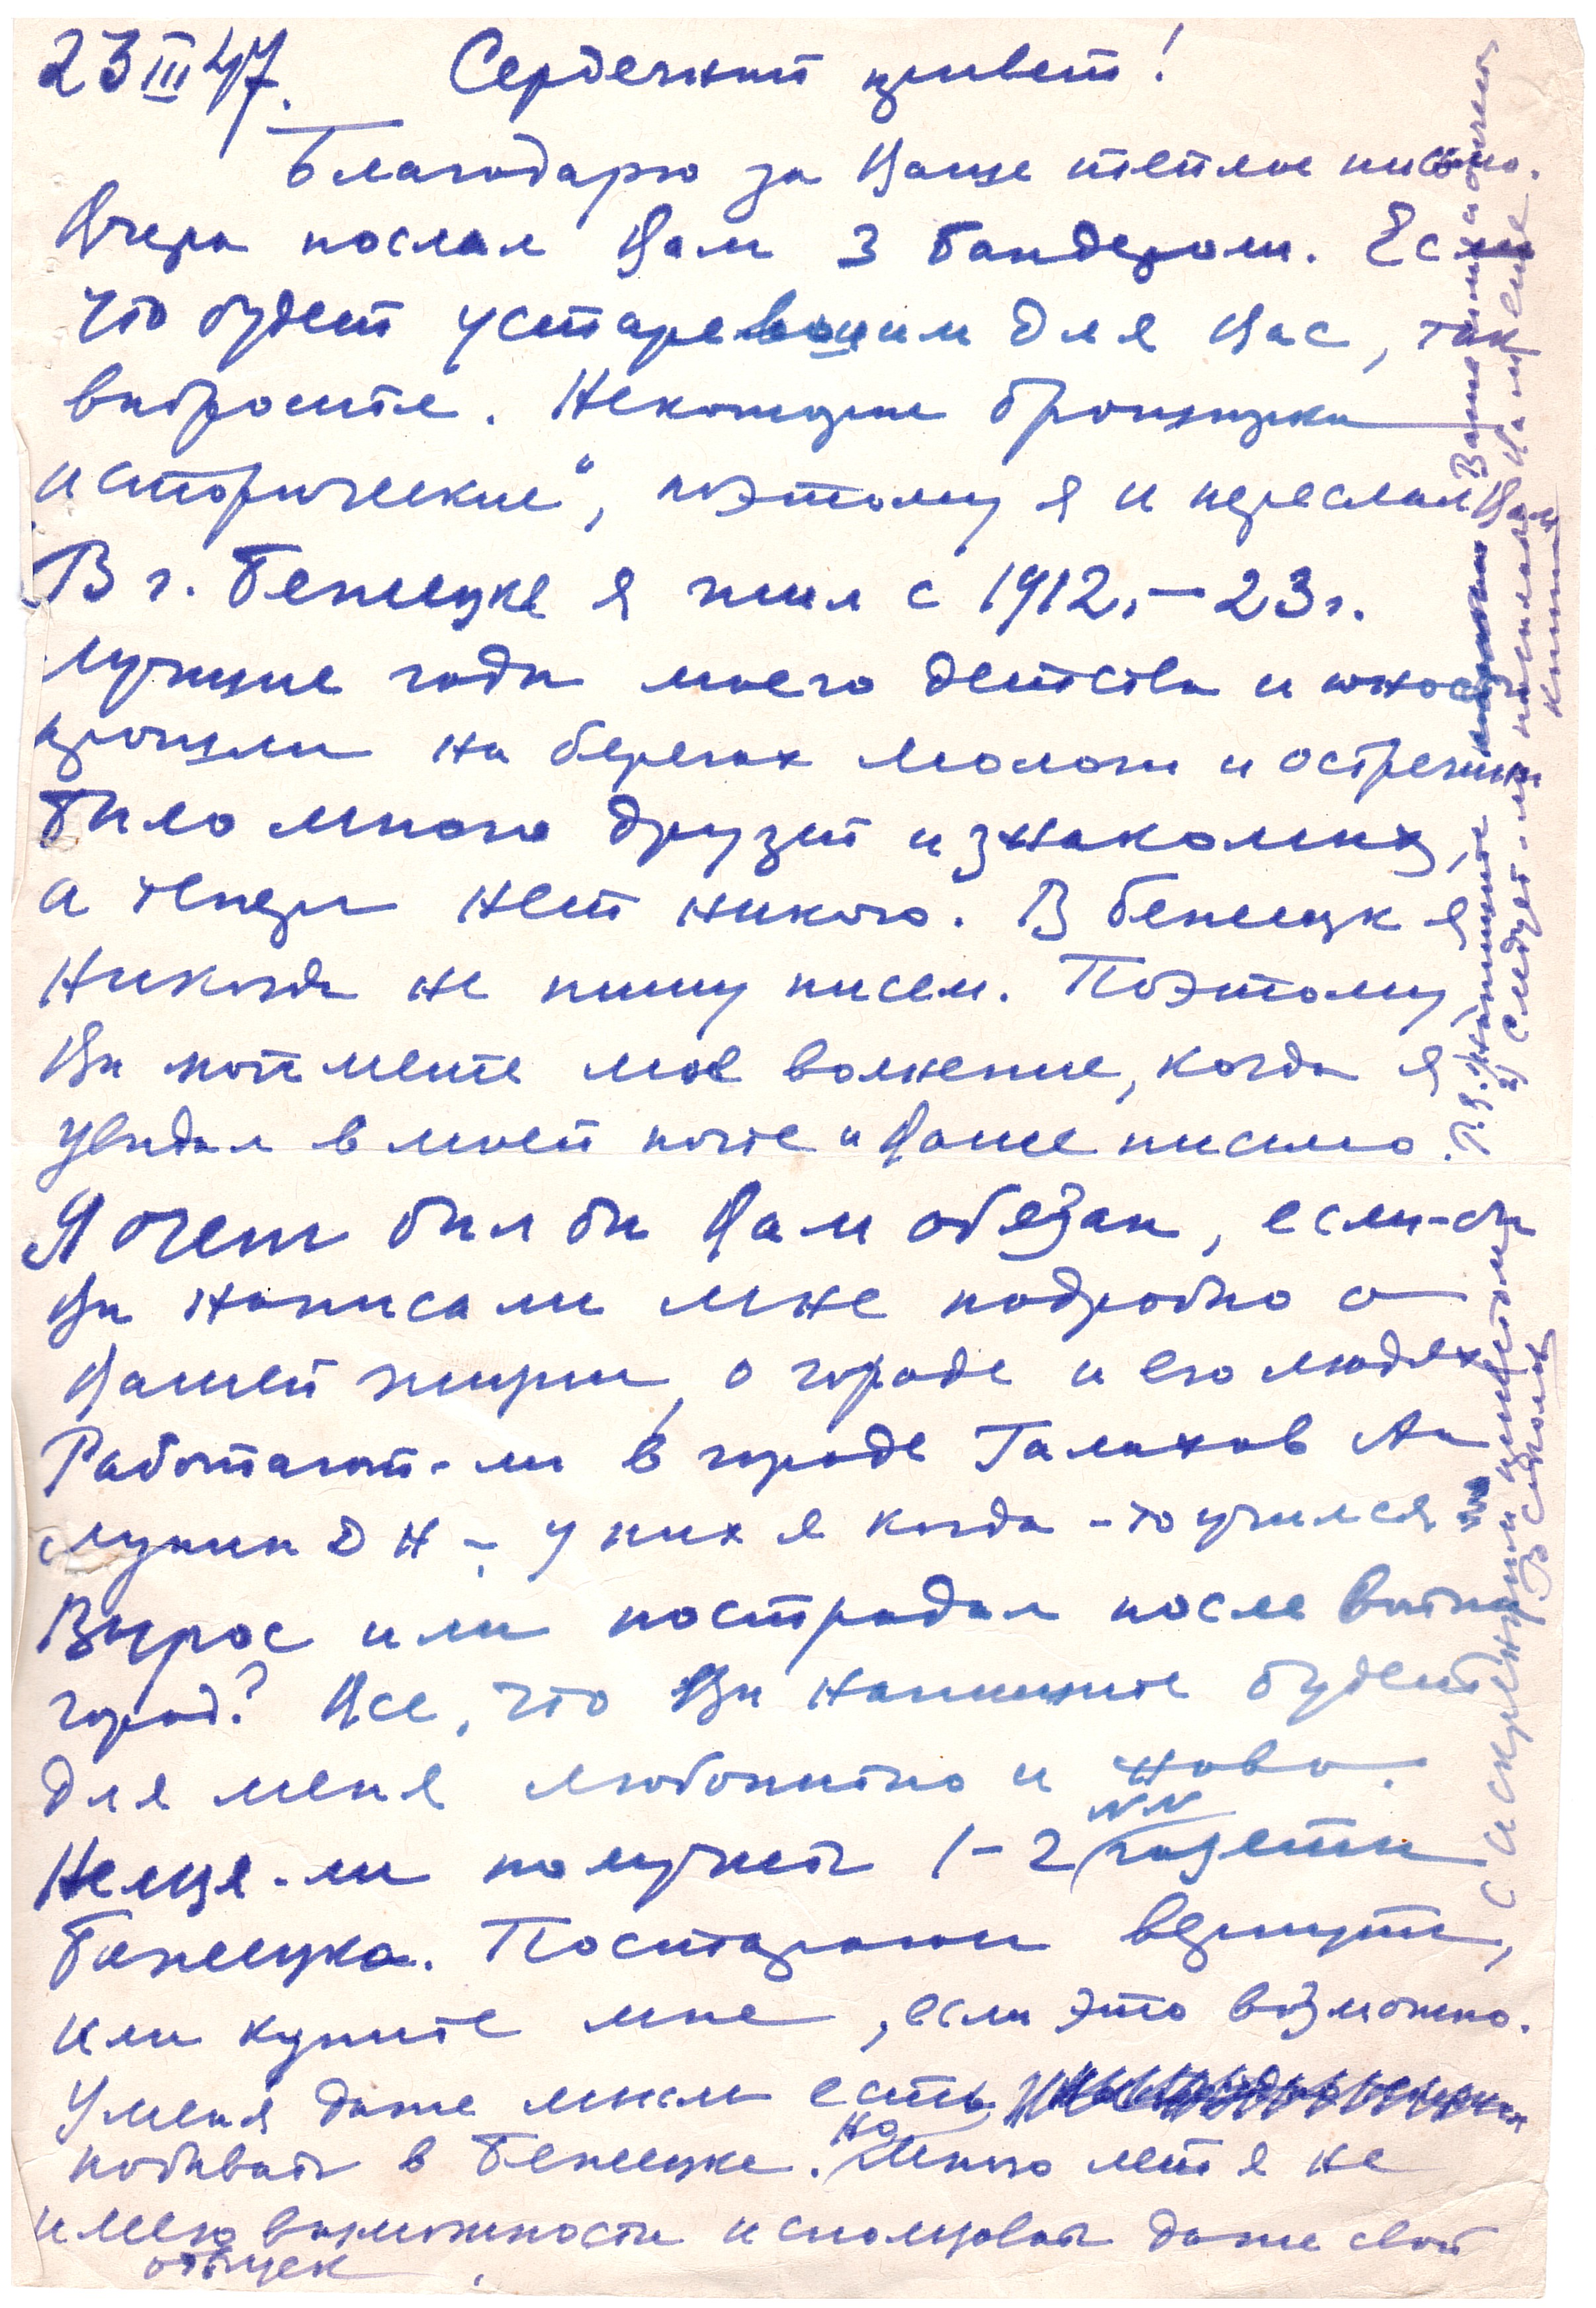 23 III 47. Сердечный привет!
Благодарю за Ваше теплое письмо.
Вчера послал Вам 3 бандероли. Если
что будет устаревшим для Вас, так
выбросите. Некоторые брошюрки
„исторические“, поэтому я и переслал Вам
В г. Бежецке я жил с 1912.–23 г.
Лучшие годы моего детства и юности
прошли на берегах Мологи и Остречины
Было много друзей и знакомых,
а теперь нет никого. В Бежецк я
никогда не пишу писем. Поэтому
Вы поймете мое волнение, когда я
увидал в моей почте и Ваше письмо.
Я очень был бы Вам обязан, если-бы
Вы написали мне подробно о
Вашей жизни, о городе и его людях
Работают-ли в городе Галахов Ал
Лукин Д Н – у них я когда-то учился
Вырос или пострадал после войны
город? Все, что Вы напишите будет
для меня любопытно и ново.
Нельзя-ли получить 1–2 №№ газеты
Бежецка. Постараюсь вернуть,
или купите мне, если это возможно.
У меня даже мысль есть
побывать в Бежецке. Но много лет я не
имею возможности использовать даже свой
отпуск.
С искренним приветом
В Смолов
P.S. 1) Напишите Ваше имя и отчест
2) Следует-ли посылать Вам еще
книги